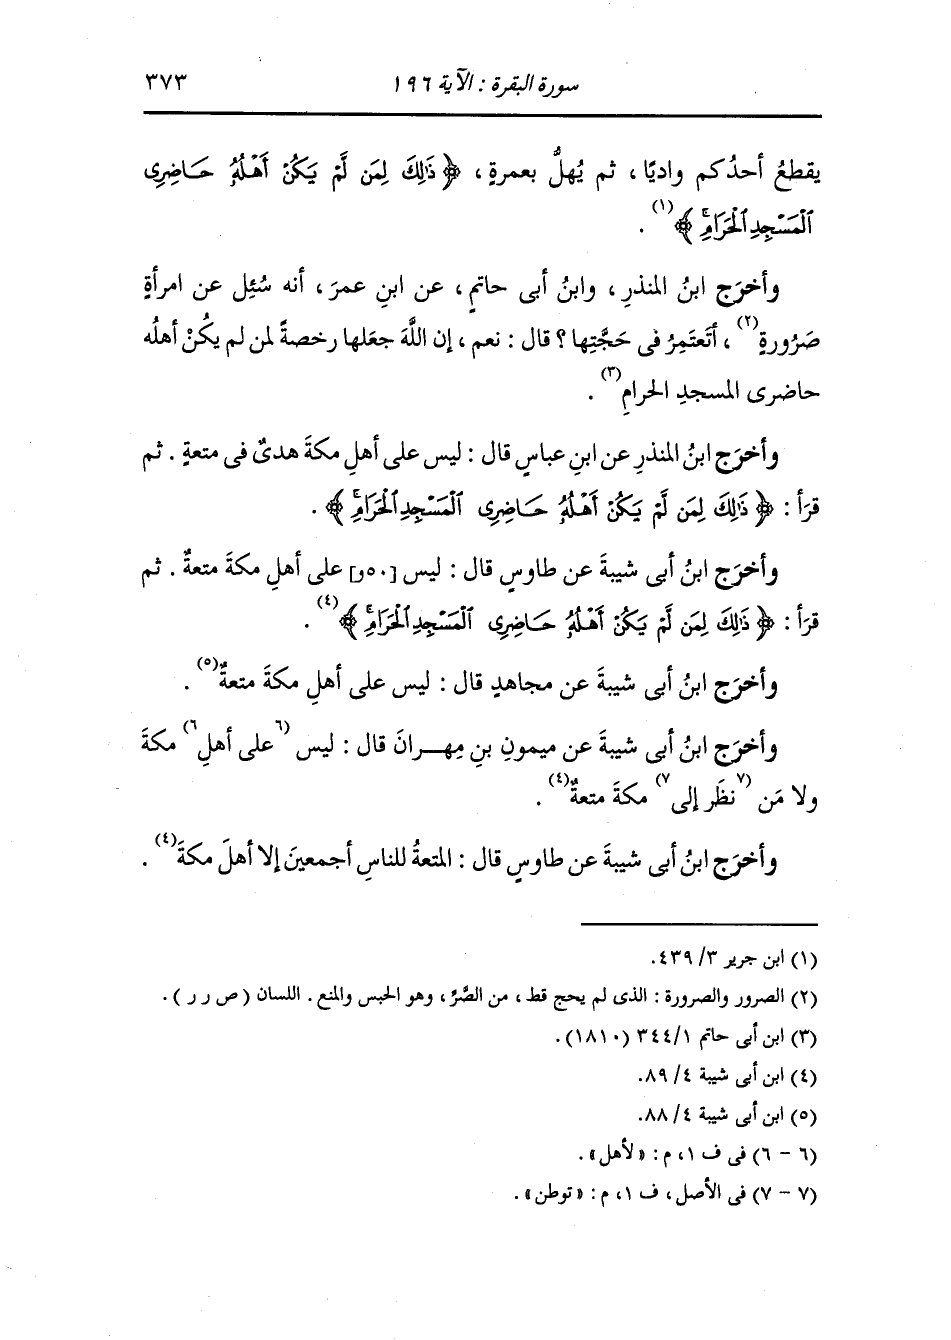 سورة البقرة : الآية ١٩٦ ٣٧٣
يقطعُ أحدُكم واديًا ، ثم يُهلُّ بعمرةٍ ، ﴿ ذَٰلِكَ لِمَن لَّمْ يَكُنْ أَهْلُهُۥ حَاضِرِى
ٱلْمَسْجِدِ ٱلْحَرَامِۚ ﴾(١) .
وأخرَج ابنُ المنذرِ ، وابنُ أبى حاتمٍ ، عن ابنِ عمرَ ، أنه سُئِل عن امرأةٍ
صَرُورةٍ(٢) ، أتَعتَمِرُ فى حَجَّتِها ؟ قال : نعم ، إن اللَّهَ جعَلها رخصةً لمن لم يكُنْ أهلُه
حاضرى المسجدِ الحرامِ(٣) .
وأخرَج ابنُ المنذرِ عن ابنِ عباسٍ قال : ليس على أهلِ مكةَ هدىٌ فى متعةٍ . ثم
قرَأ : ﴿ ذَٰلِكَ لِمَن لَّمْ يَكُنْ أَهْلُهُۥ حَاضِرِى ٱلْمَسْجِدِ ٱلْحَرَامِۚ ﴾ .
وأخرَج ابنُ أبى شيبةَ عن طاوسٍ قال : ليس [٥٠و] على أهلِ مكةَ متعةٌ . ثم
قرَأ : ﴿ ذَٰلِكَ لِمَن لَّمْ يَكُنْ أَهْلُهُۥ حَاضِرِى ٱلْمَسْجِدِ ٱلْحَرَامِۚ ﴾(٤) .
وأخرَج ابنُ أبى شيبةَ عن مجاهدٍ قال : ليس على أهلِ مكةَ متعةٌ(٥) .
وأخرَج ابنُ أبى شيبةَ عن ميمونِ بنِ مِهرانَ قال : ليس (٦على أهلِ٦) مكةَ
ولا مَن (٧نظَر إلى٧) مكةَ متعةٌ(٤) .
وأخرَج ابنُ أبى شيبةَ عن طاوسٍ قال : المتعةُ للناسِ أجمعينَ إلا أهلَ مكةَ(٤) .
(١) ابن جرير ٣/ ٤٣٩.
(٢) الصرور والصرورة : الذى لم يحج قط ، من الصَّرّ ، وهو الحبس والمنع . اللسان ( ص ر ر ) .
(٣) ابن أبى حاتم ٣٤٤/١ (١٨١٠).
(٤) ابن أبى شيبة ٤/ ٨٩.
(٥) ابن أبى شيبة ٤/ ٨٨.
(٦ - ٦) فى ف ١، م : «لأهل» .
(٧ - ٧) فى الأصل ، ف ١، م : «توطن» .